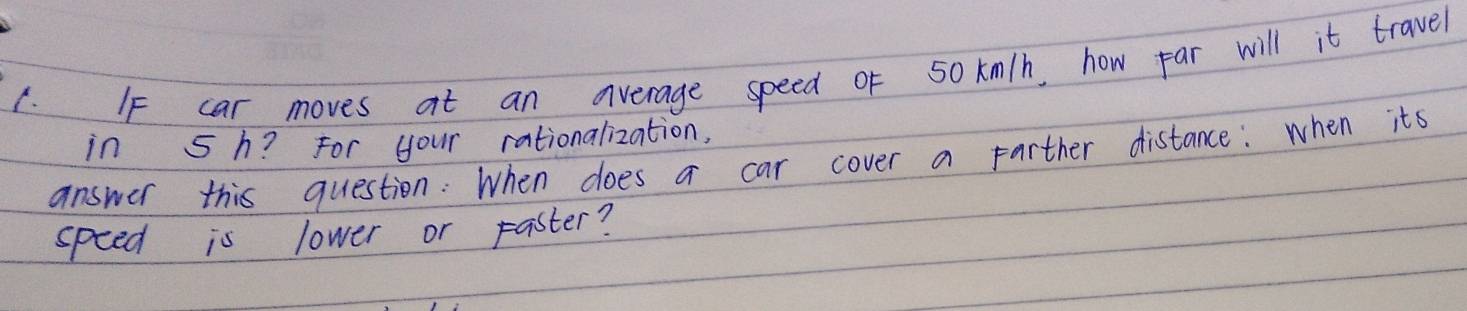 1. IF car moves at an average speed OF 50 km/h, how far will it travel
in 5 h? For your rationalization,
answer this question: When does a car cover a farther distance: when its
speed is lower or faster?